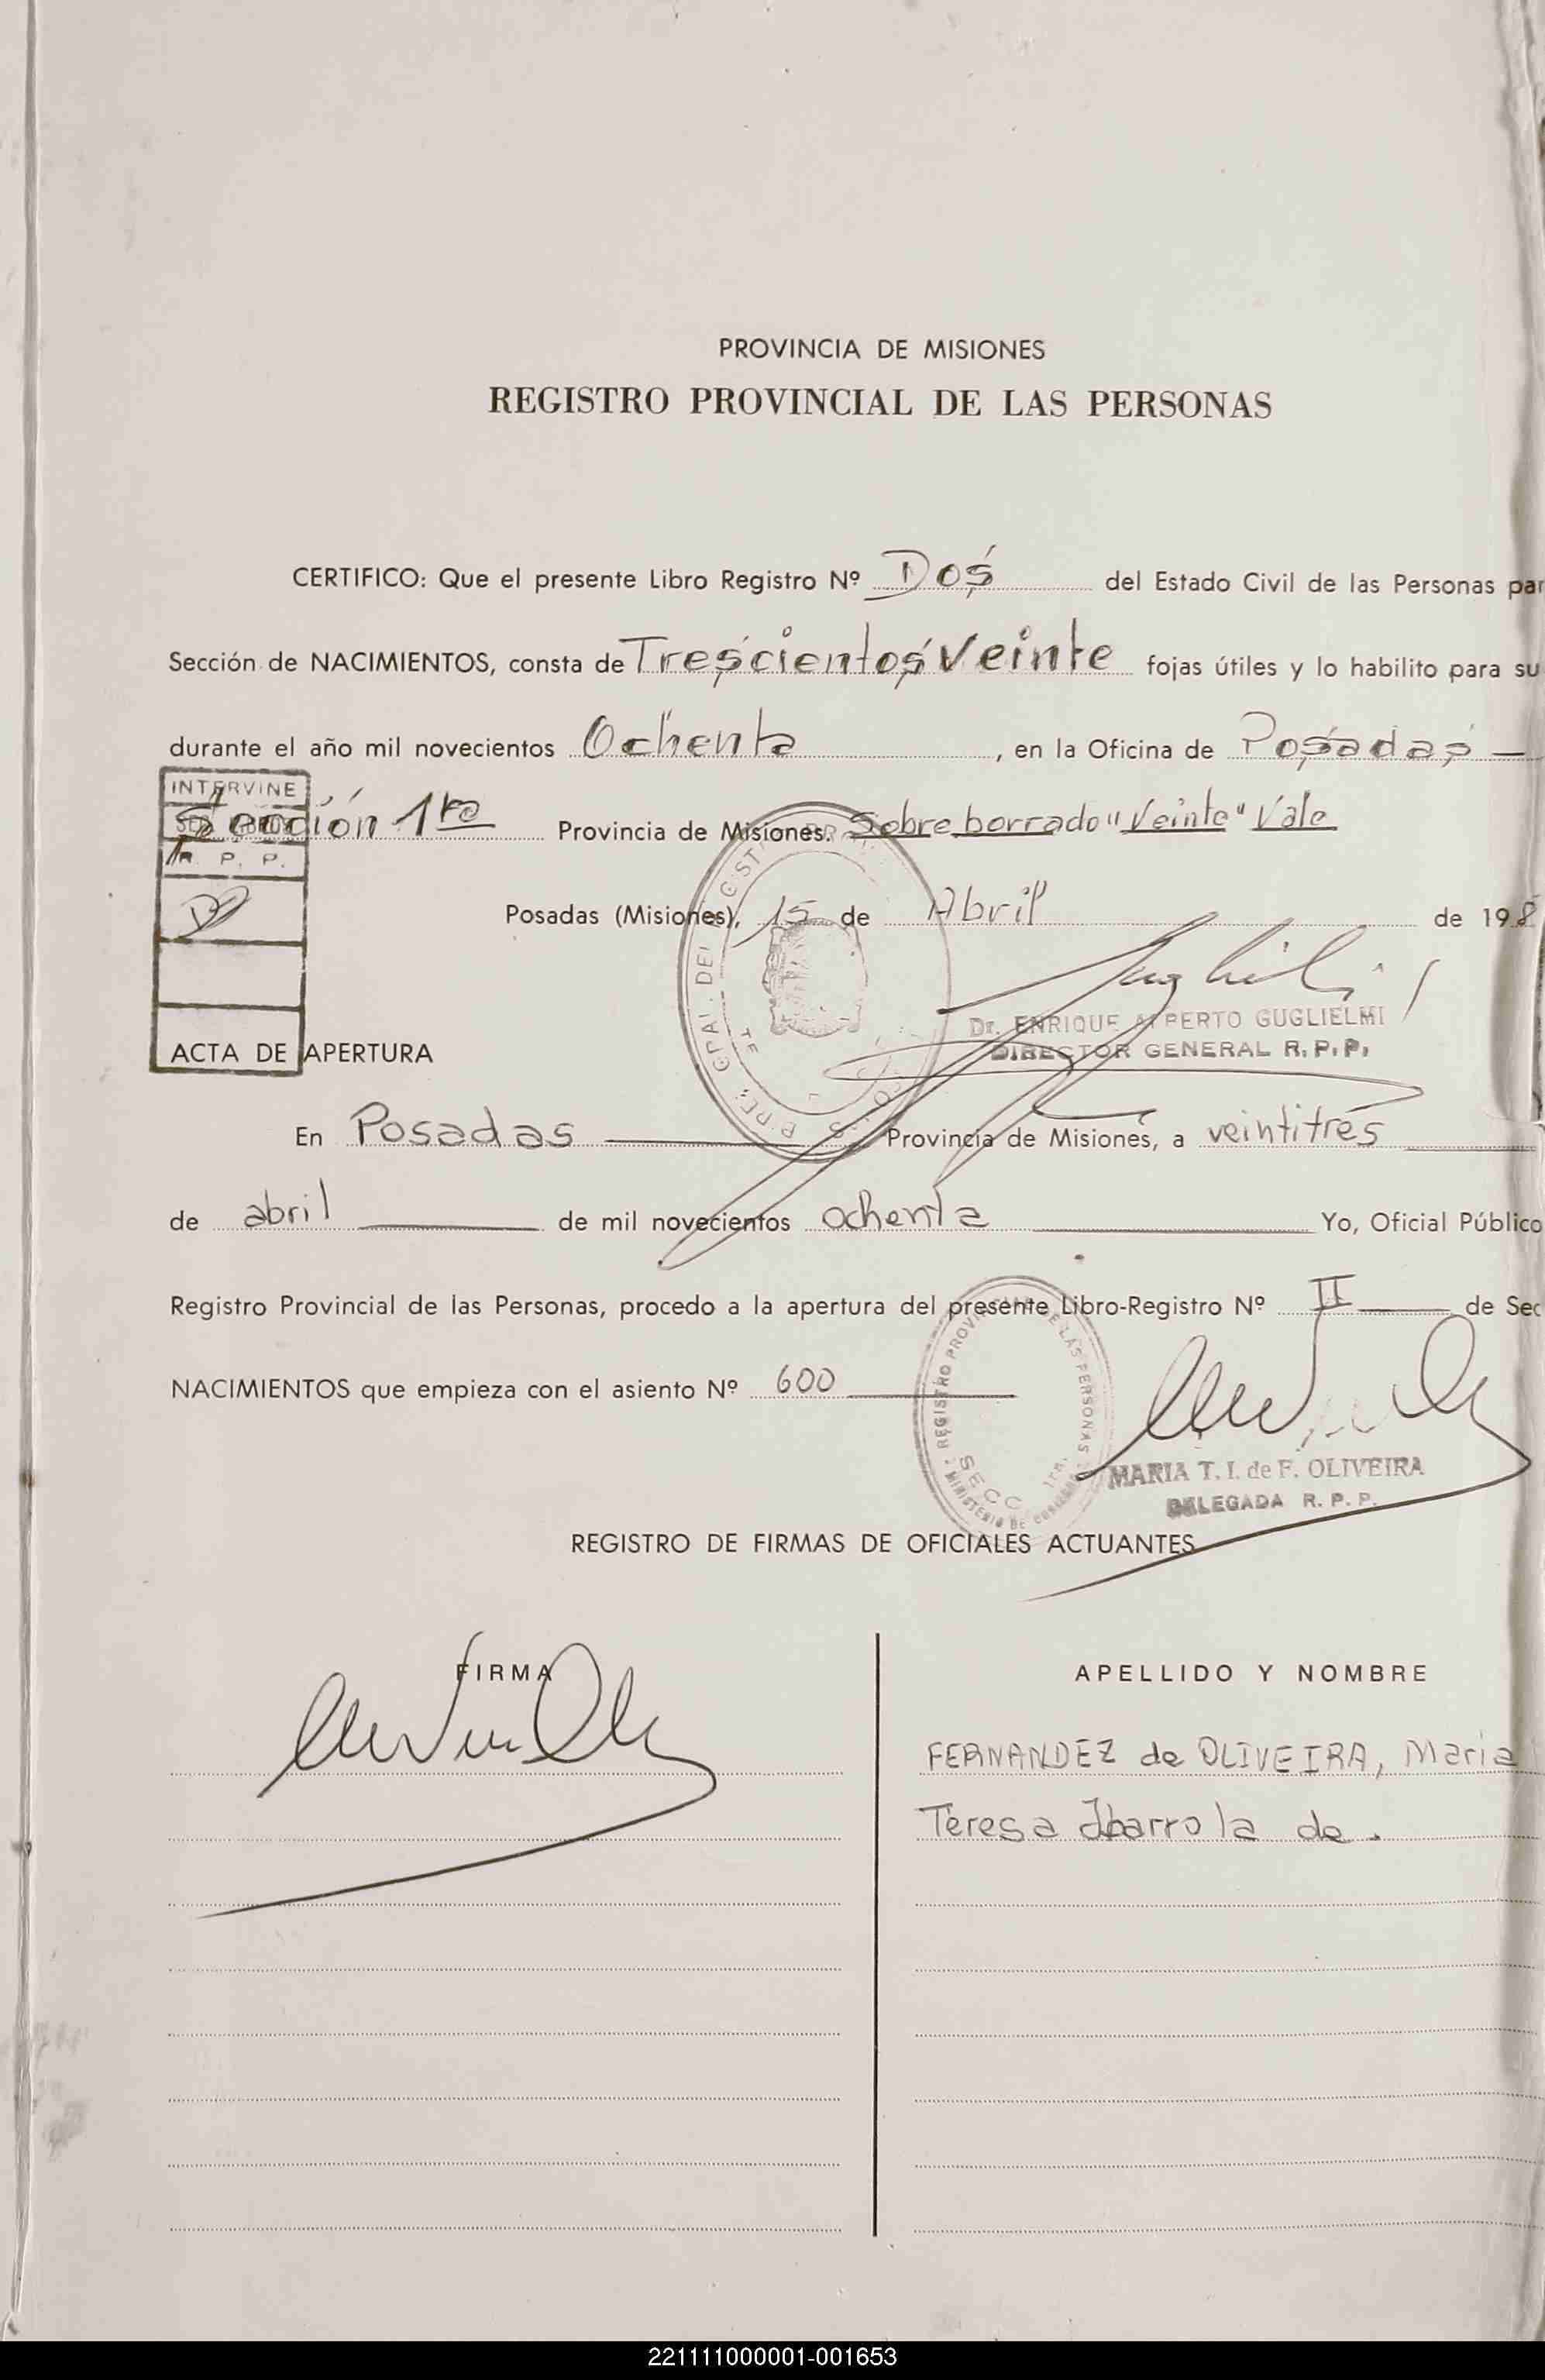 PROVINCIA DE MISIONES
REGISTRO PROVINCIAL DE LAS PERSONAS
CERTIFICO: Que el presente Libro Registro Nº Dos del Estado Civil de las Personas par
Sección de NACIMIENTOS, consta de Trescientos Veinte fojas útiles y lo habilito para su
durante el año mil novecientos Ochenta, en la Oficina de Posadas —
INTERVINE
Sección 1ra Provincia de Misiones. Sobre borrado "Veinte" Vale
R. P. P.
Posadas (Misiones), 15 de Abril de 198
Dr. ENRIQUE ALBERTO GUGLIELMI
DIRECTOR GENERAL R. P. P.
ACTA DE APERTURA
En Posadas — Provincia de Misiones, a veintitrés
de abril — de mil novecientos ochenta — Yo, Oficial Público
Registro Provincial de las Personas, procedo a la apertura del presente Libro-Registro Nº II — de Sec
NACIMIENTOS que empieza con el asiento Nº 600 —
REGISTRO PROVINCIAL DE LAS PERSONAS
SECC 1ra.
MINISTERIO DE
MARIA T. I. de F. OLIVEIRA
DELEGADA R. P. P.
REGISTRO DE FIRMAS DE OFICIALES ACTUANTES
FIRMA
APELLIDO Y NOMBRE
FERNANDEZ de OLIVEIRA, Maria
Teresa Ibarrola de.
221111000001-001653